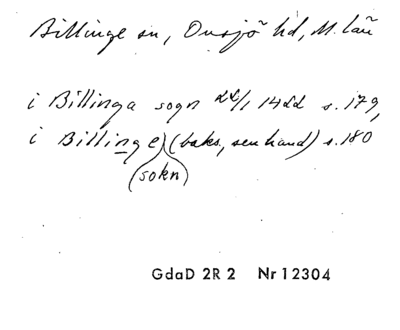 Billinge sn, Onsjö hd, M.län
i Billinga sogn 22/1 1422 s.179,
i Billinge) (baks., sen hand) s.180
(sokn)
GdaD 2R2 Nr 12304